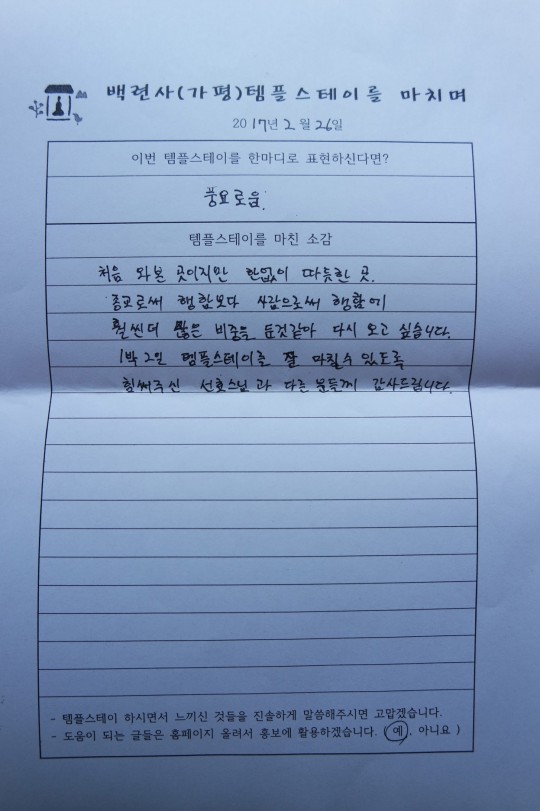 백련사(가평)템플스테이를 마치며
2017년 2월 26일
이번 템플스테이를 한마디로 표현하신다면?
풍요로움.
템플스테이를 마친 소감
처음 와본 곳이지만 한없이 따듯한 곳.
종교로써 행함보다 사람으로써 행함에
훨씬더 많은 비중을 둔것같아 다시 오고 싶습니다.
1박2일 템플스테이를 잘 마칠수 있도록
힘써주신 선효스님과 다른 분들께 감사드립니다.
- 템플스테이 하시면서 느끼신 것들을 진솔하게 말씀해주시면 고맙겠습니다.
- 도움이 되는 글들은 홈페이지 올려서 홍보에 활용하겠습니다. ( 예, 아니요 )